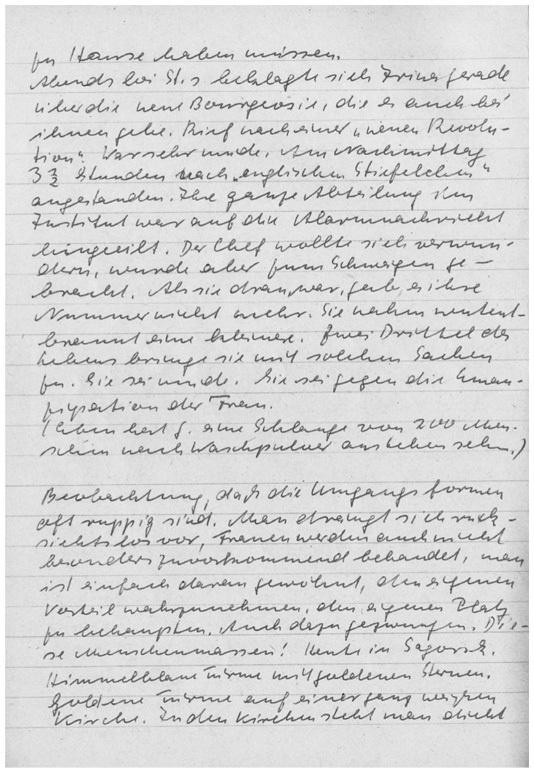 zu Hause haben müssen.
Abends bei St.s beklagte sich Irina gerade
über die neue Bourgeosie, die es auch bei
ihnen gebe. Rief nach einer „neuen Revolu-
tion“. War sehr müde. Am Nachmittag
3 ½ Stunden nach „englischen Stiefelchen“
angestanden. Ihre ganze Abteilung im
Institut war auf die Alarmnachricht
hingeeilt. Der Chef wollte sich verwun-
dern, wurde aber zum Schweigen ge-
bracht. Als sie dran war, gab es ihre
Nummer nicht mehr. Sie nahm wutent-
brannt eine kleinere. Zwei Drittel des
Lebens bringe sie mit solchen Sachen
zu. Sie sei müde. Sie sei gegen die Eman-
zipation der Frau.
(Eben hat G. eine Schlange von 200 Men-
schen nach Waschpulver anstehen sehn.)
Beobachtung, daß die Umgangsformen
oft ruppig sind. Man drängt sich rück-
sichtslos vor, Frauen werden auch nicht
besonders zuvorkommend behandelt, man
ist einfach daran gewöhnt, den eigenen
Vorteil wahrzunehmen, den eigenen Platz
zu behaupten. Auch dazu gezwungen. Die-
se Menschenmassen! Heute in Sagorsk.
Himmelblaue Türme mit goldenen Sternen.
Goldene Türme auf einer ganz weißen
Kirche. In den Kirchen steht man dicht